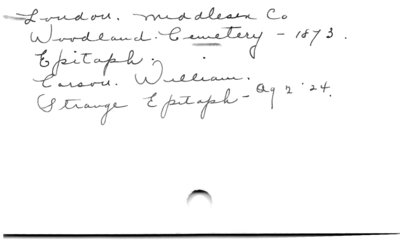 London. Middlesex Co
Woodland. Cemetery - 1873.
Epitaph.
Carson. William.
Strange Epitaph - Ag 2 '24.